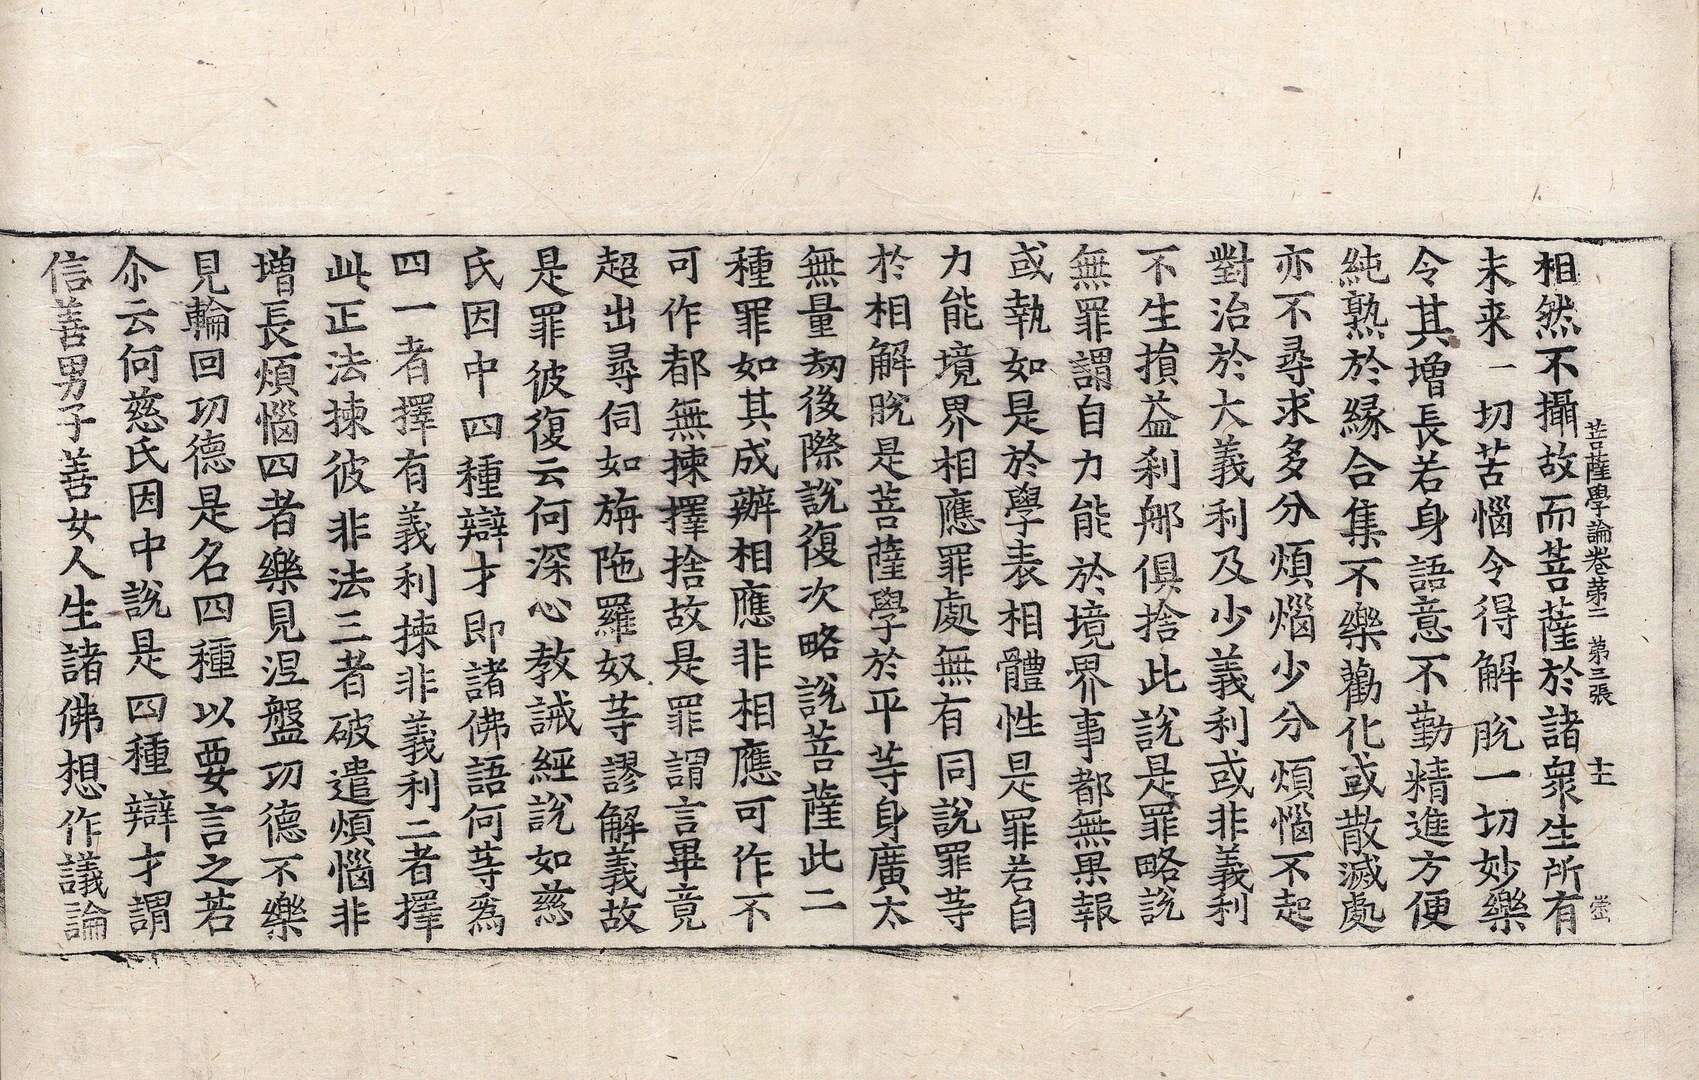 菩薩學論卷第二 第三張 十二 瑩
相然不攝故而菩薩於諸衆生所有
未来一切苦惱令得解脫一切妙樂
令其增長若身語意不勤精進方便
純熟於縁合集不樂勸化或散滅處
亦不尋求多分煩惱少分煩惱不起
對治於大義利及少義利或非義利
不生損益刹那俱捨此說是罪略說
無罪謂自力能於境界事都無果報
或執如是於學表相體性是罪若自
力能境界相應罪處無有同說罪等
於相解脫是菩薩學於平等身廣太
無量劫後際說復次略說菩薩此二
種罪如其成辦相應非相應可作不
可作都無揀擇捨故是罪謂言畢竟
超出尋伺如旃陁羅奴等謬解義故
是罪彼復云何深心教誡經說如慈
氏因中四種辯才即諸佛語何等爲
四一者擇有義利揀非義利二者擇
此正法揀彼非法三者破遣煩惱非
增長煩惱四者樂見涅盤功德不樂
見輪回功德是名四種以要言之若
尒云何慈氏因中說是四種辯才謂
信善男子善女人生諸佛想作議論